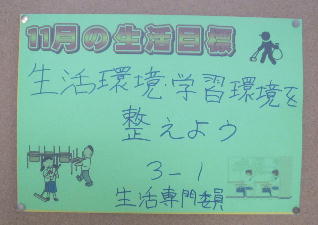 11月の生活目標
生活環境・学習環境を
整えよう
3-1
生活専門委員